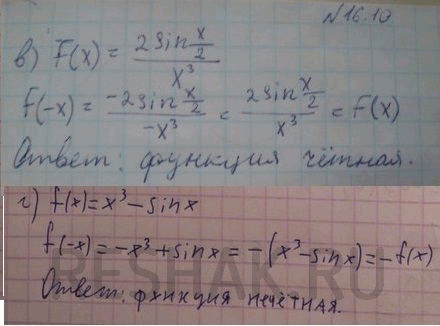 №16.10
в) F(x) = 2sin x/2 / x³
f(-x) = -2sin x/2 / -x³ = 2sin x/2 / x³ = F(x)
Ответ: функция чётная.
г) f(x)=x³-sinx
f(-x)=-x³+sinx=-(x³-sinx)=-f(x)
RESHAK.RU
Ответ: функция нечётная.